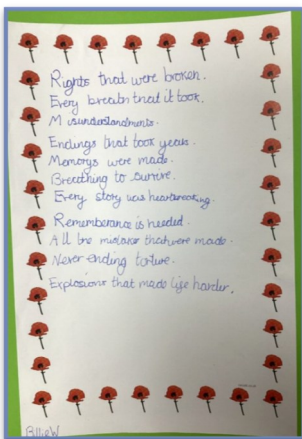 Rights that were broken.
Every breath that it took.
Misunderstandments.
Endings that took years.
Memorys were made.
Breathing to survive.
Every story was heartbreaking.
Rememberance is needed.
All the mistakes that were made.
Never ending torture.
Explosions that made life harder.
Billie W